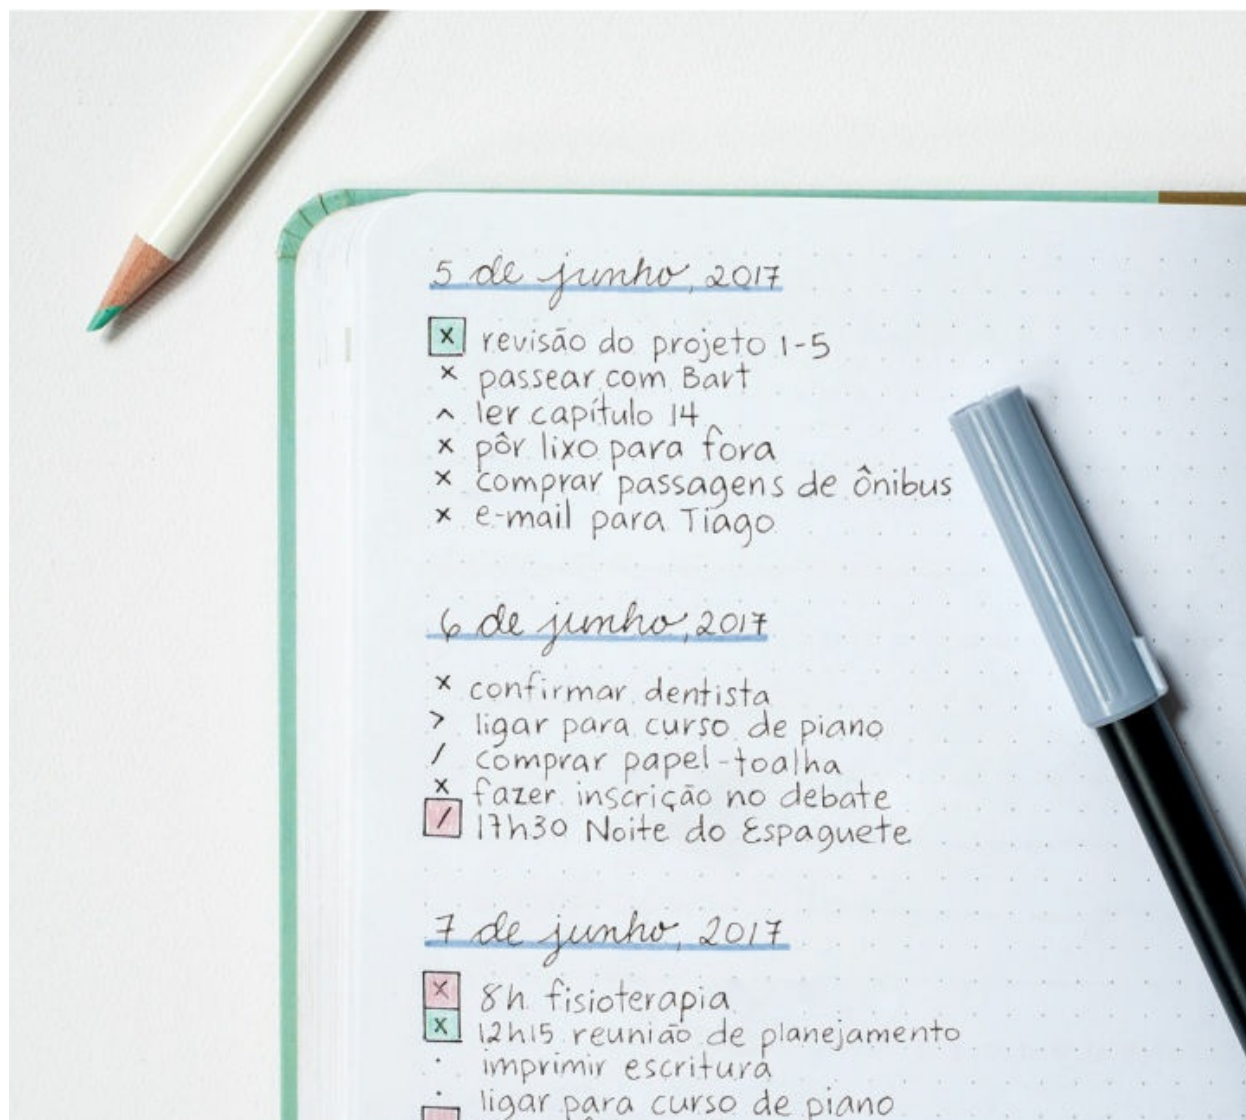 5 de junho, 2017
x revisão do projeto 1-5
x passear com Bart
^ ler capítulo 14
x pôr lixo para fora
x comprar passagens de ônibus
x e-mail para Tiago
6 de junho, 2017
x confirmar dentista
> ligar para curso de piano
/ comprar papel-toalha
x fazer inscrição no debate
/ 17h30 Noite do Espaguete
7 de junho, 2017
x 8h fisioterapia
x 12h15 reunião de planejamento
· imprimir escritura
· ligar para curso de piano